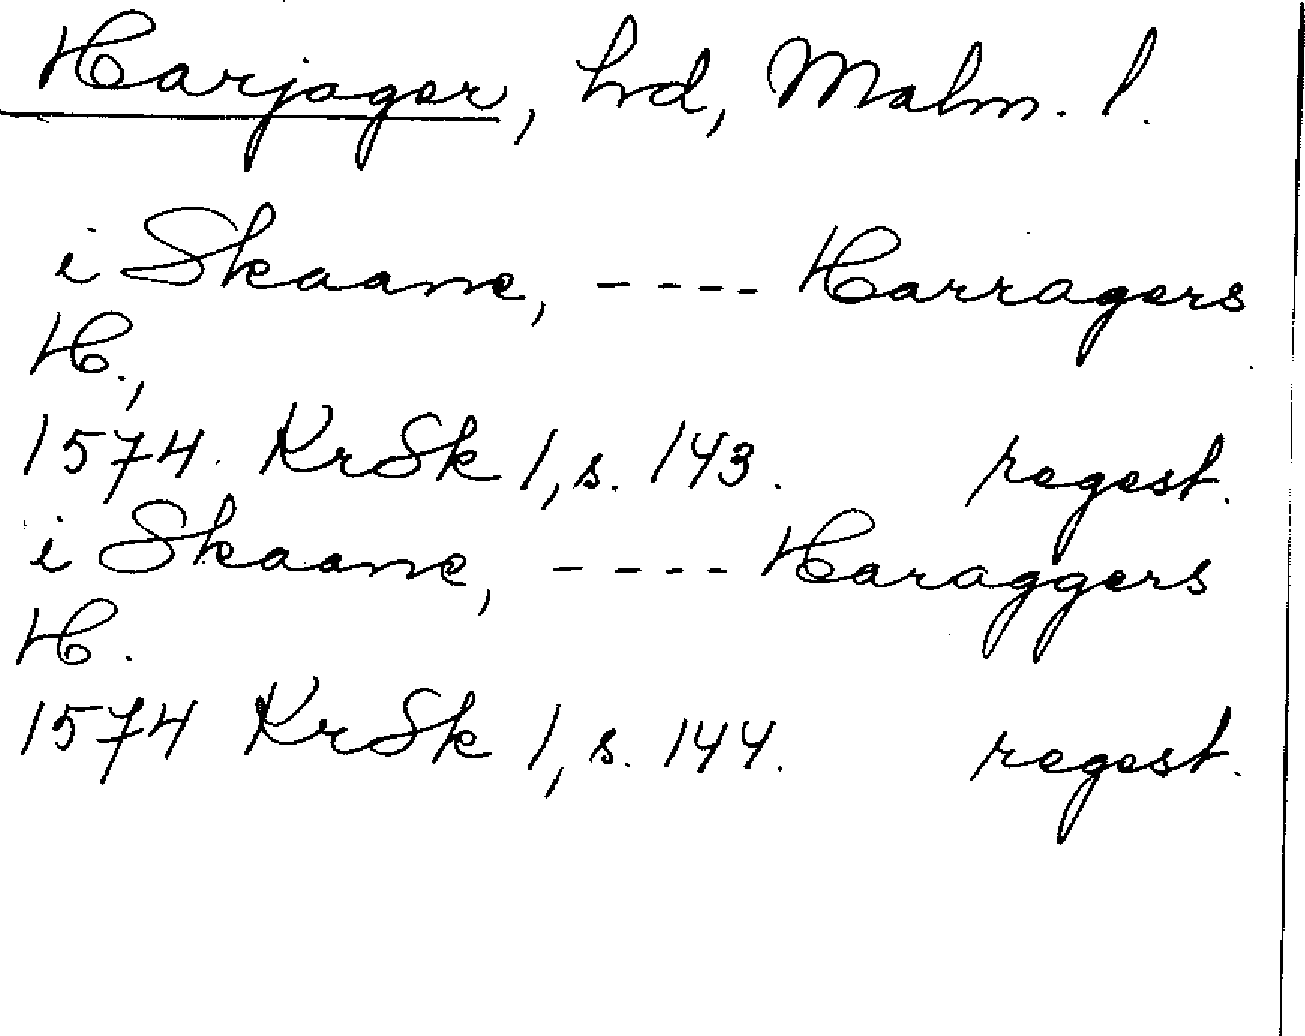 Harjager, hd, Malm. l.
i Skaane, ---- Harragers
H.,
1574. KrSk 1, s. 143. regest.
i Skaane, ---- Haraggers
H.
1574 KrSk 1, s. 144. regest.